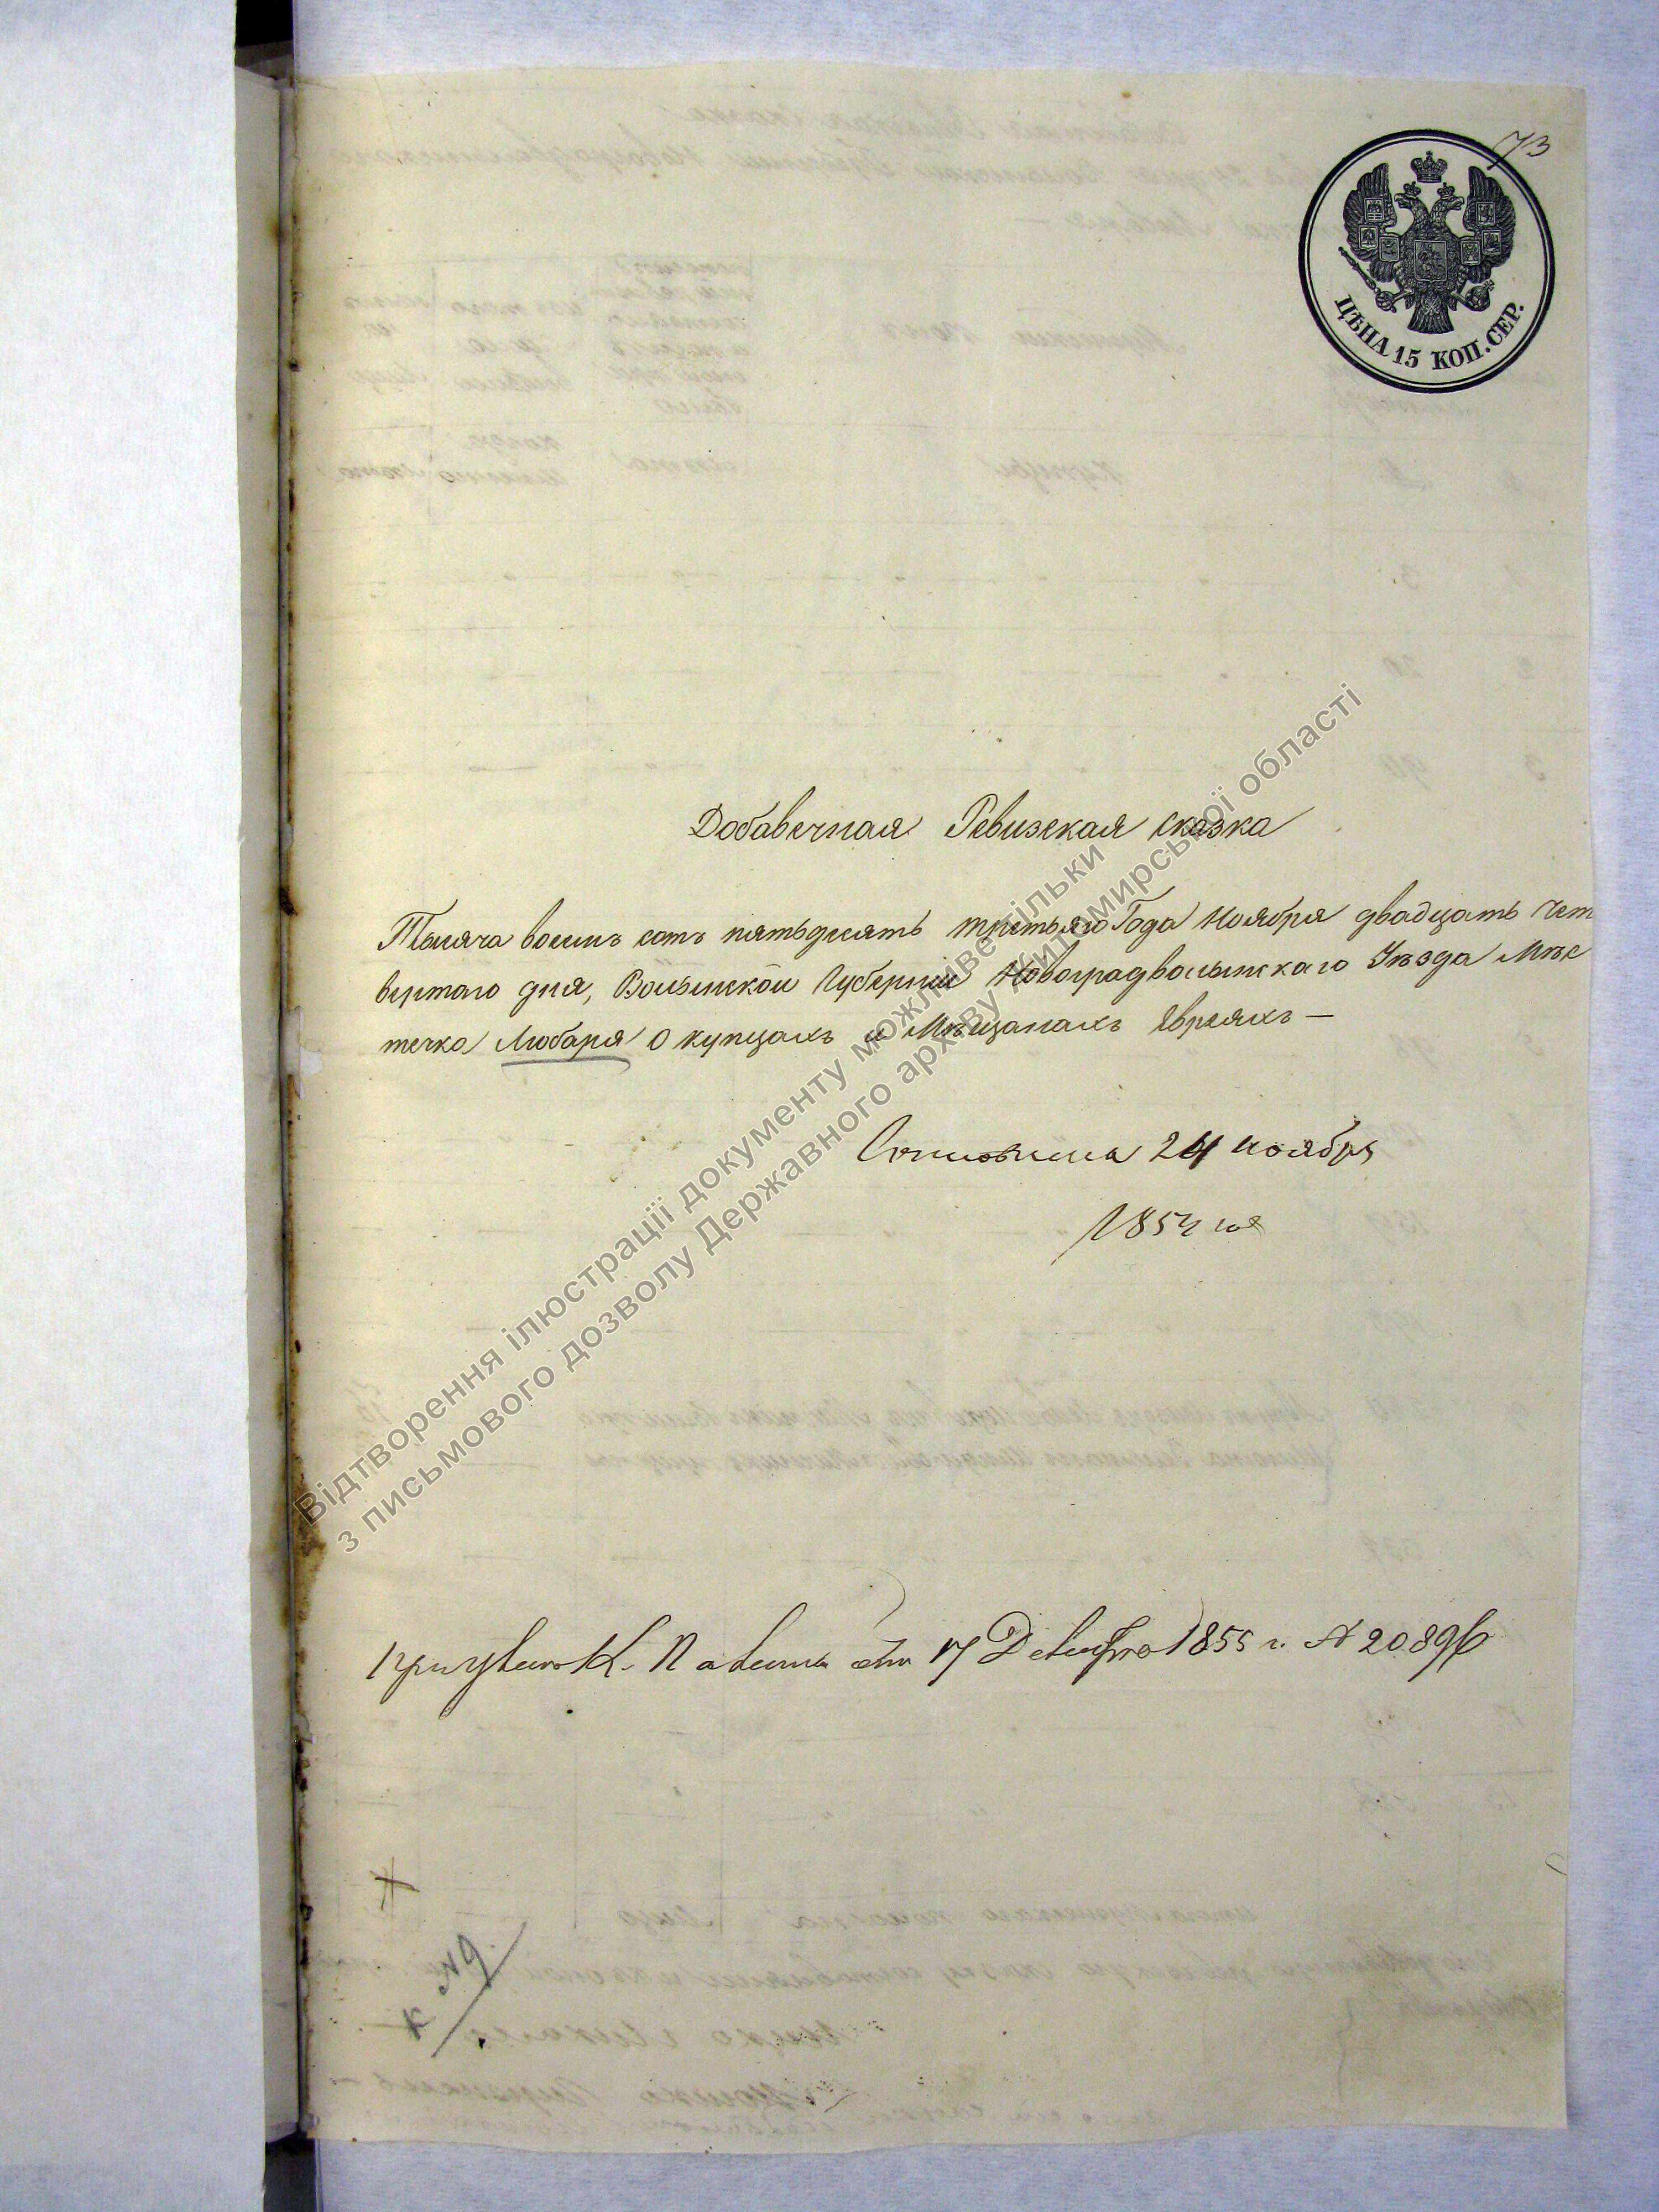 73
ЦѢНА 15 КОП. СЕР.
Добавечная Ревизская сказка
Тысяча восемь сотъ пятьдесятъ третьяго Года Ноября двадцать Чет
вертаго дня, Волынской Губерніи Новоградволынскаго Уѣзда Мѣс
течка Любаря О купцахъ и Мѣщанахъ Евреяхъ —
24 Ноября
1854 год
К. 17 Декабря 1855 г. № 20896
№ 9
Відтворення ілюстрації документу можливе тільки
з письмового дозволу Державного архіву Житомирської області